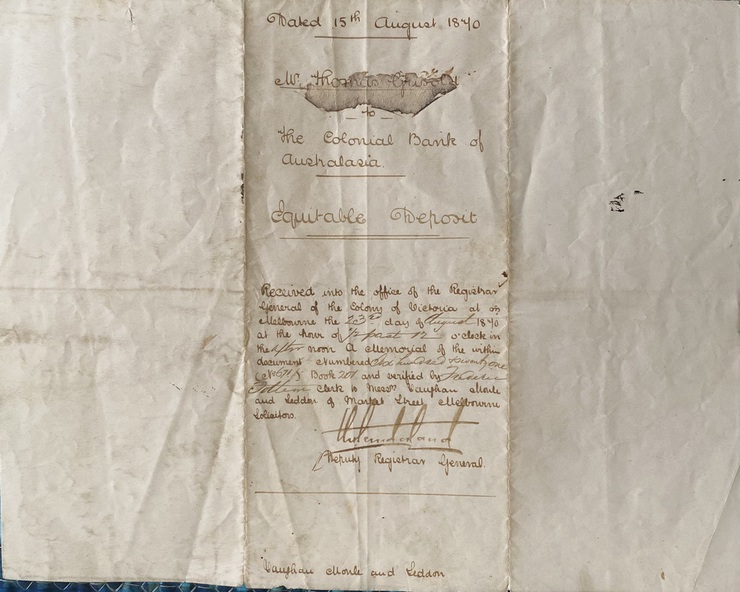 Dated 15th August 1870
Mr. Thomas
to
The Colonial Bank of
Australasia.
Equitable Deposit
Received into the office of the Registrar
General of the Colony of Victoria at
Melbourne the 23rd day of August 1870
at the hour of ½ past 12 o'clock in
the after noon A Memorial of the within
document Numbered hundred & seventy one
Book 201 and verified by
clerk to Messrs Vaughan Moule
and Seddon of Market Street Melbourne
Solicitors.
Deputy Registrar General.
Vaughan Moule and Seddon